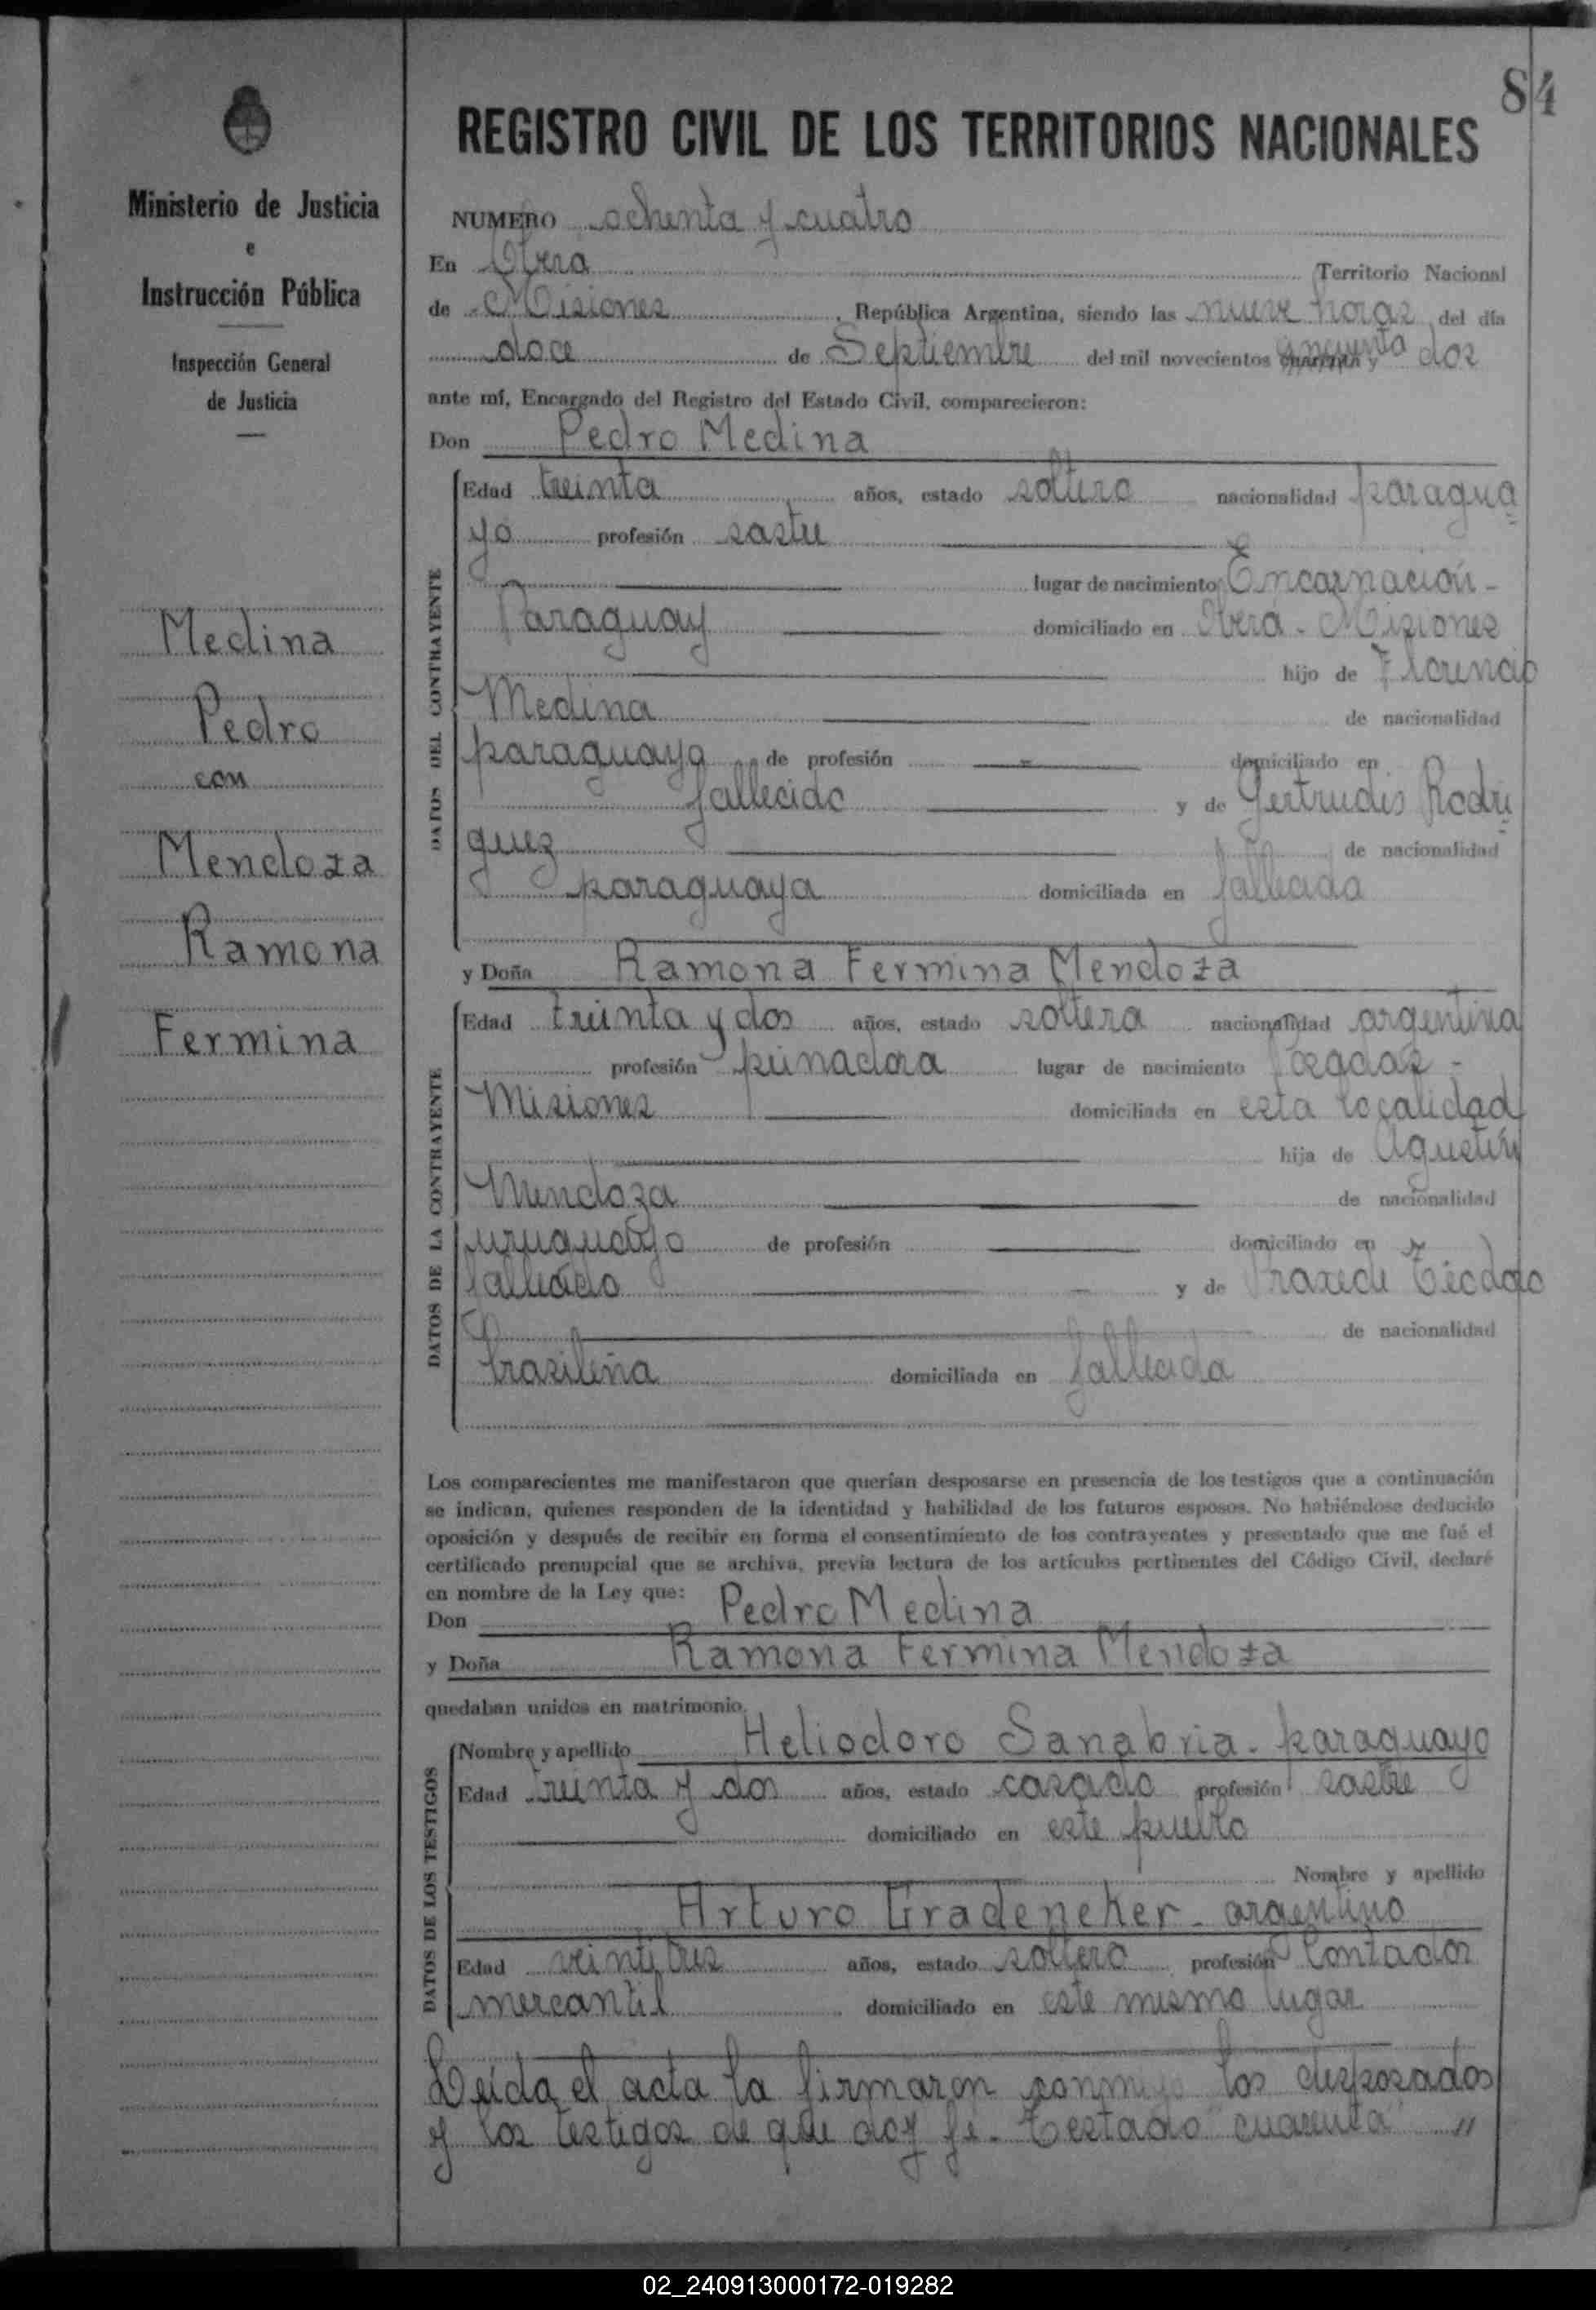 84
Ministerio de Justicia
e
Instrucción Pública
Inspección General
de Justicia
Medina
Pedro
con
Mendoza
Ramona
Fermina
REGISTRO CIVIL DE LOS TERRITORIOS NACIONALES
NUMERO ochenta y cuatro
En Oberá Territorio Nacional
de Misiones, República Argentina, siendo las nueve horas del día
doce de Septiembre del mil novecientos cincuenta y dos
ante mí, Encargado del Registro del Estado Civil, comparecieron:
Don Pedro Medina
DATOS DEL CONTRAYENTE
Edad treinta años, estado soltero nacionalidad paragua
yo profesión sastre
lugar de nacimiento Encarnación -
Paraguay domiciliado en Oberá - Misiones
hijo de Florencio
Medina de nacionalidad
paraguayo de profesión domiciliado en
fallecido y de Gertrudis Rodri
guez de nacionalidad
paraguaya domiciliada en fallecida
y Doña Ramona Fermina Mendoza
DATOS DE LA CONTRAYENTE
Edad treinta y dos años, estado soltera nacionalidad argentina
profesión peinadora lugar de nacimiento Posadas -
Misiones domiciliada en esta localidad
hija de Agustín
Mendoza de nacionalidad
uruguayo de profesión domiciliado en
fallecido y de
de nacionalidad
brasileña domiciliada en fallecida
Los comparecientes me manifestaron que querían desposarse en presencia de los testigos que a continuación
se indican, quienes responden de la identidad y habilidad de los futuros esposos. No habiéndose deducido
oposición y después de recibir en forma el consentimiento de los contrayentes y presentado que me fué el
certificado prenupcial que se archiva, previa lectura de los artículos pertinentes del Código Civil, declaré
en nombre de la Ley que:
Don Pedro Medina
y Doña Ramona Fermina Mendoza
quedaban unidos en matrimonio.
DATOS DE LOS TESTIGOS
Nombre y apellido Heliodoro Sanabria - paraguayo
Edad treinta y dos años, estado casado profesión sastre
domiciliado en este pueblo
Nombre y apellido
Arturo Gradeneker - argentino
Edad veintitres años, estado soltero profesión Contador
mercantil domiciliado en este mismo lugar
Leída el acta la firmaron conmigo los desposados
y los testigos de que doy fe. Testado "cuarenta" "
02_240913000172-019282